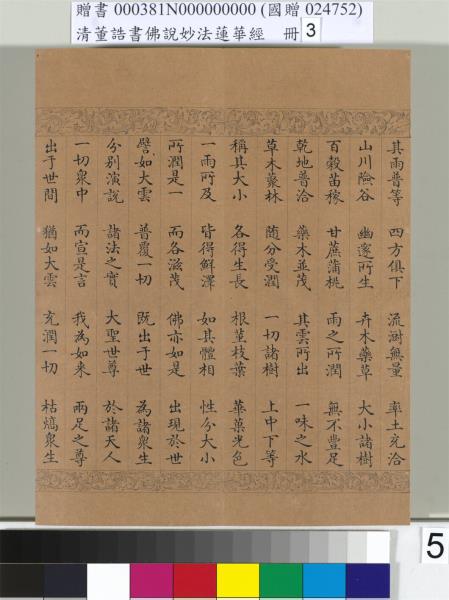 贈書 000381N000000000 (國贈 024752)
清董誥書佛說妙法蓮華經 冊 3
其雨普等 四方俱下 流澍無量 率土充洽
山川險谷 幽邃所生 卉木藥草 大小諸樹
百穀苗稼 甘蔗蒲桃 雨之所潤 無不豐足
乾地普洽 藥木並茂 其雲所出 一味之水
草木叢林 隨分受潤 一切諸樹 上中下等
稱其大小 各得生長 根莖枝葉 華菓光色
一雨所及 皆得鮮澤 如其體相 性分大小
所潤是一 而各滋茂 佛亦如是 出現於世
譬如大雲 普覆一切 既出于世 為諸眾生
分別演說 諸法之實 大聖世尊 於諸天人
一切眾中 而宣是言 我為如來 兩足之尊
出于世間 猶如大雲 充潤一切 枯槁眾生
5